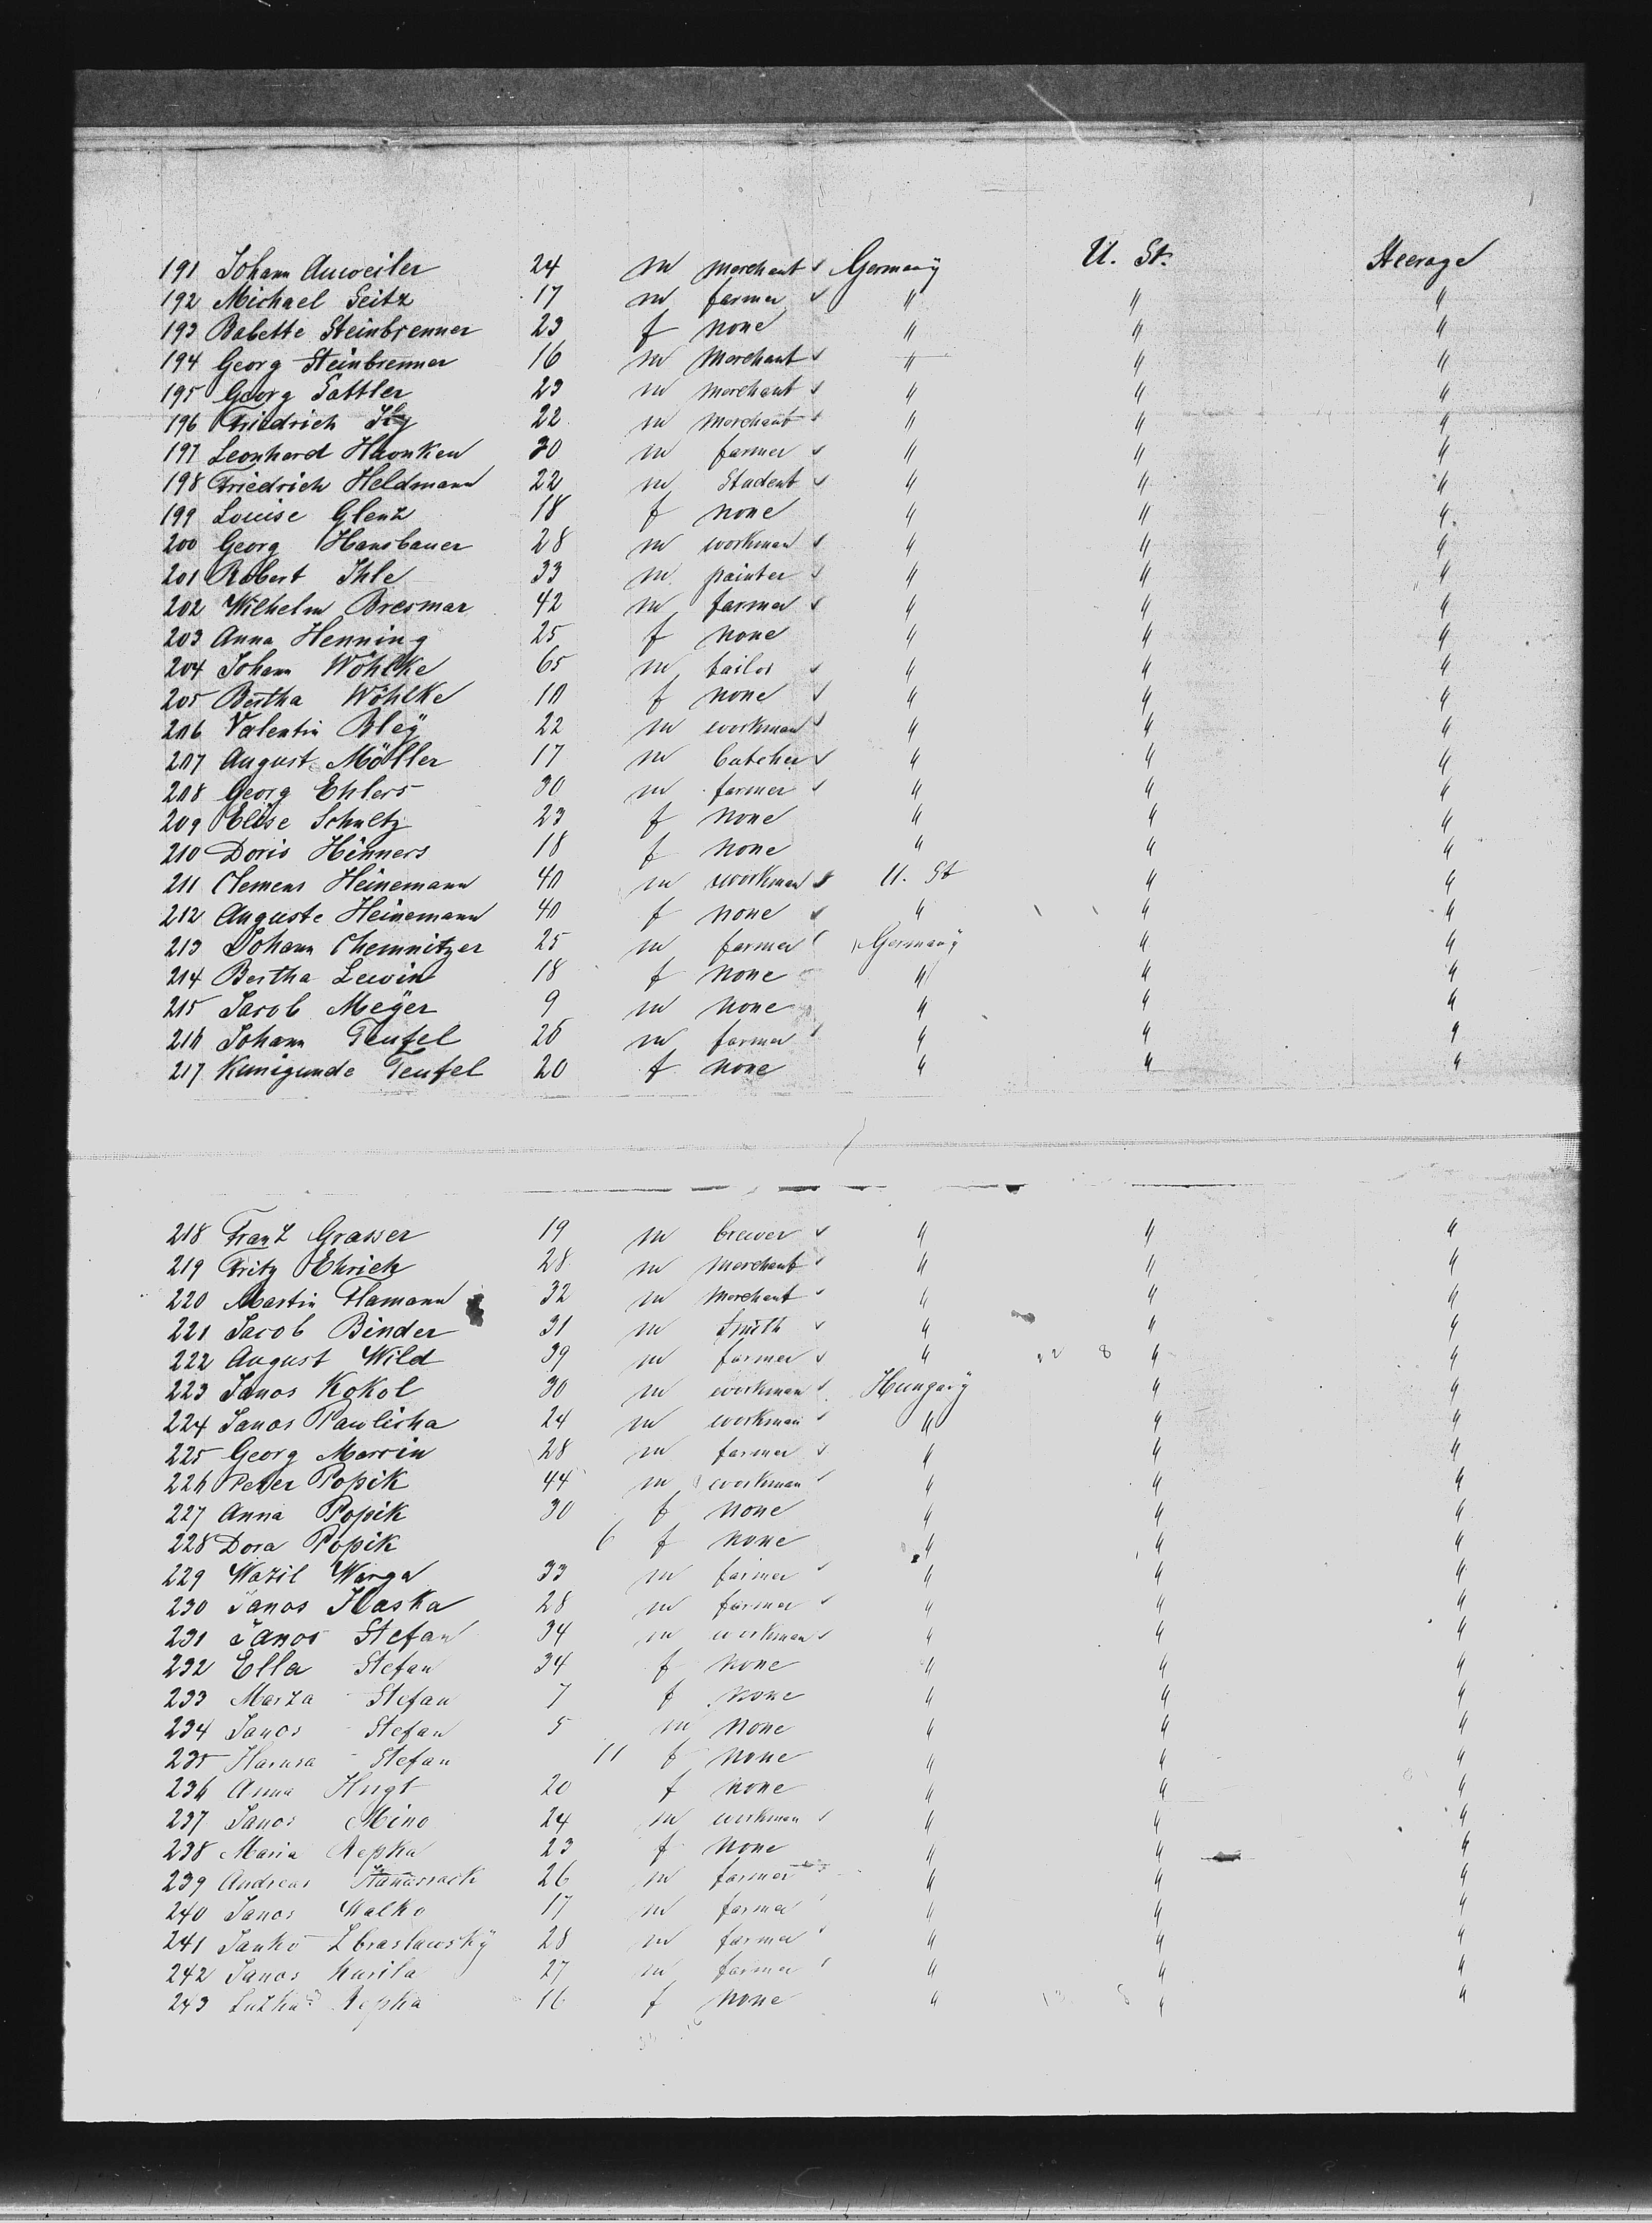 191 Johann Auweiler 24 m merchant Germany U. St. Steerage
192 Michael Seitz 17 m farmer " " "
193 Babette Steinbrenner 23 f none " " "
194 Georg Steinbrenner 16 m merchant " " "
195 Georg Sattler 23 m merchant " " "
196 Friedrich 22 m merchant " " "
197 Leonhard 30 m farmer " " "
198 Friedrich Heldmann 22 m Student " " "
199 Louise Glenz 18 f none " " "
200 Georg Hansbauer 28 m workman " " "
201 Robert Ihle 33 m painter " " "
202 Wilhelm Bresmar 42 m farmer " " "
203 Anna Henning 25 f none " " "
204 Johann Wöhlke 65 m tailor " " "
205 Bertha Wöhlke 10 f none " " "
206 Valentin Bleÿ 22 m workman " " "
207 August Möller 17 m butcher " " "
208 Georg Ehlers 30 m farmer " " "
209 Elise Schultz 23 f none " " "
210 Doris Hinners 18 f none " " "
211 Clemens Heinemann 40 m workman U. St " "
212 Auguste Heinemann 40 f none " " "
213 Johann Chemnitzer 25 m farmer Germany " "
214 Bertha Lewin 18 f none " " "
215 Jacob Meÿer 9 m none " " "
216 Johann Teufel 26 m farmer " " "
217 Kunigunde Teufel 20 f none " " "
218 Franz Grasser 19 m brewer " " "
219 Fritz Ehrich 28 m merchant " " "
220 Martin Hamann 32 m merchant " " "
221 Jacob Binder 31 m smith " " "
222 August Wild 39 m farmer " " "
223 Janos Kokol 30 m workman Hungary " "
224 Janos Pawlicha 24 m workman " " "
225 Georg Marcin 28 m farmer " " "
226 Peter Popik 44 m workman " " "
227 Anna Popik 30 f none " " "
228 Dora Popik 6 f none " " "
229 Wazil Warga 33 m farmer " " "
230 Janos Ilaska 28 m farmer " " "
231 Janos Stefan 34 m workman " " "
232 Ella Stefan 34 f none " " "
233 Marza Stefan 7 f none " " "
234 Janos Stefan 5 m none " " "
235 Stefan 11 f none " " "
236 Anna 20 f none " " "
237 Janos Mino 24 m workman " " "
238 Maria Repka 23 f none " " "
239 Andreas 26 m farmer " " "
240 Janos Malko 17 m farmer " " "
241 Janko Zbraslawskÿ 28 m farmer " " "
242 Janos Kurila 27 m farmer " " "
243 Repka 16 f none " " "